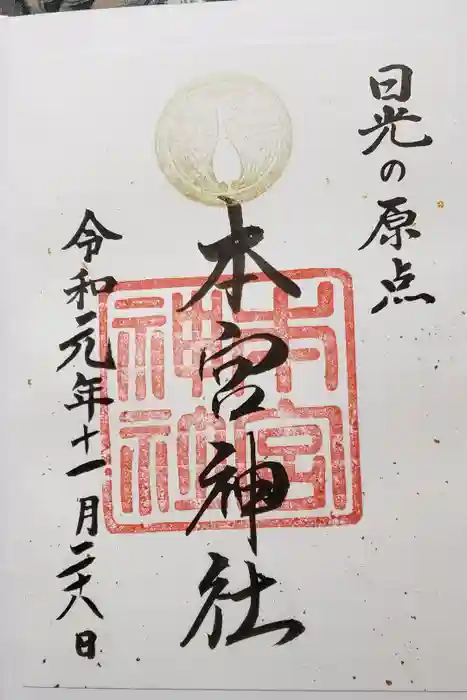 日光の原点
本宮神社
令和元年十一月二十八日
本宮
神社